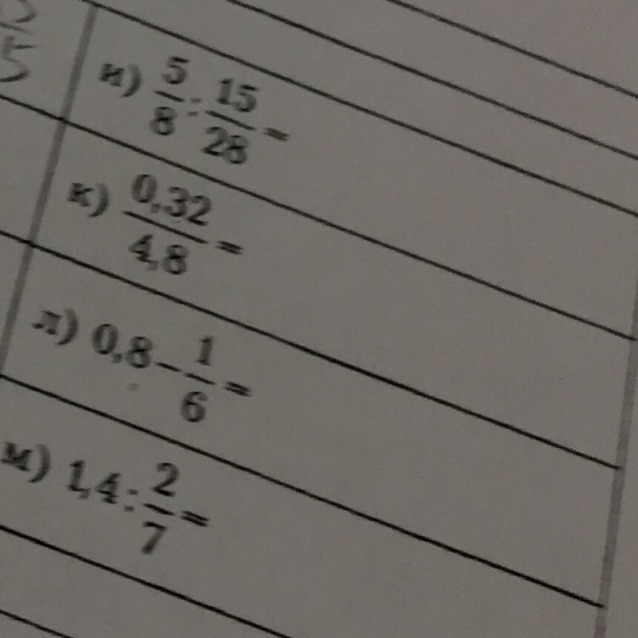 и) 5/8 : 15/28 =
к) 0,32/4,8 =
л) 0,8 − 1/6 =
м) 1,4 : 2/7 =